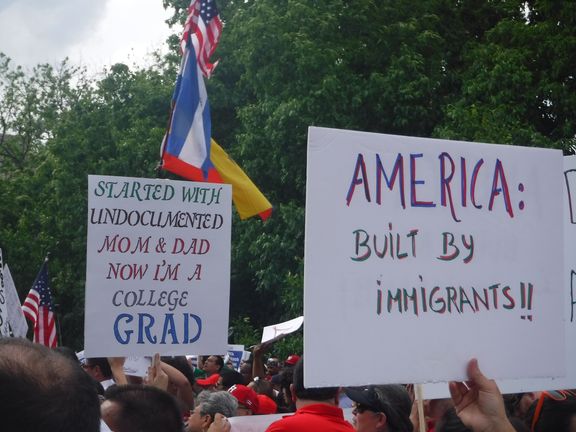 STARTED WITH
UNDOCUMENTED
MOM & DAD
NOW I'M A
COLLEGE
GRAD
AMERICA:
BUILT BY
iMMIGRANTS!!